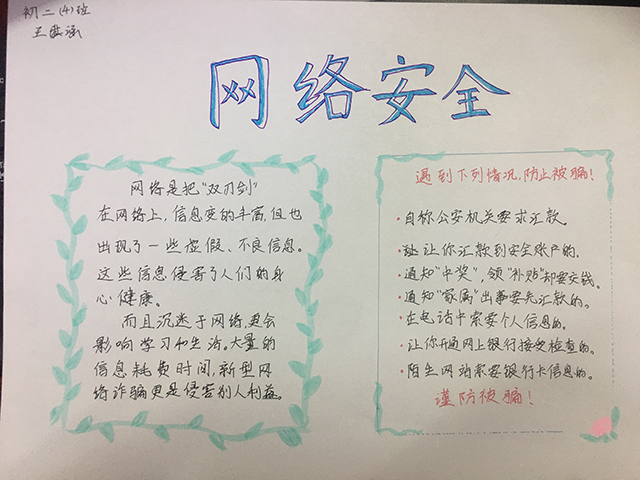 初二(4)班
王
网络安全
网络是把"双刃剑"
在网络上,信息变的丰富,但也
出现了一些虚假、不良信息。
这些信息侵害了人们的身
心健康。
而且沉迷于网络,更会
影响学习和生活。大量的
信息耗费时间,新型网
络诈骗更是侵害别人利益。
遇到下列情况,防止被骗!
·自称公安机关要求汇款。
让你汇款到安全账户的。
·通知"中奖",领"补贴"却要交钱。
·通知"家属"出事要先汇款的。
·在电话中索要个人信息的。
·让你开通网上银行接受检查的。
·陌生网站索要银行卡信息的。
谨防被骗!